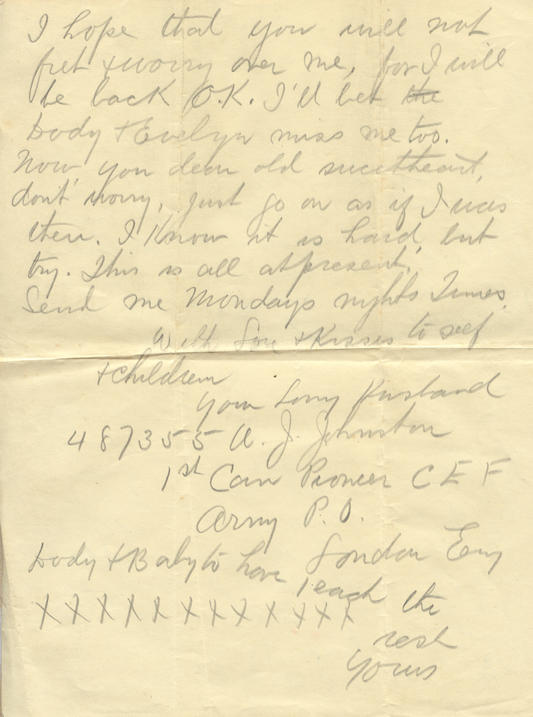 I hope that you will not
fret & worry over me, for I will
be back O.K. I'll bet the
body & Evelyn miss me too.
Now, you dear old sweetheart,
don't worry, just go on as if I was
there. I know it is hard, but
try. This is all at present,
Send me Mondays nights Times.
With Love & Kisses to self
& children
Your Loving Husband
487355 A. J. Johnston
1st Can Pioneer C E F
Army P. O.
London Eng
Body & Baby to have 1 each the
X X X X X X X X X X X X X
rest
Yours